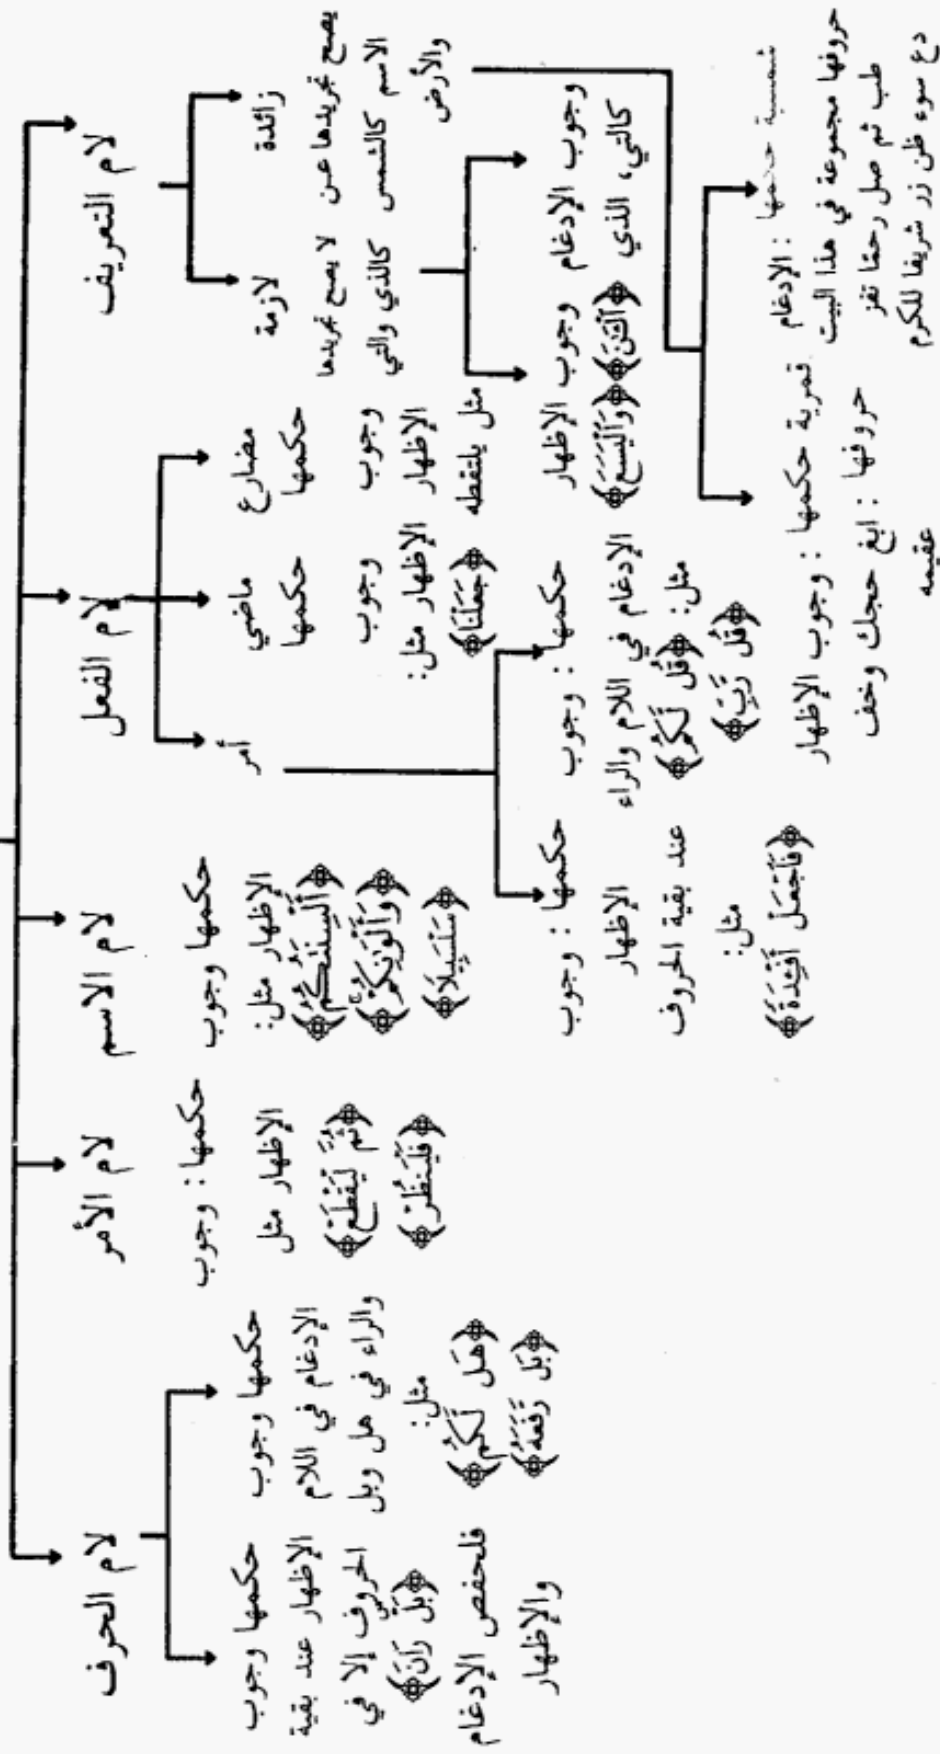 لام التعريف
زائدة
يصح تجريدها عن
الاسم كالشمس
والأرض
لازمة
لا يصح تجريدها
كالذي والتي
وجوب الإدغام
كالتي، الذي
وجوب الإظهار
﴿وَٱلْيَسَعَ﴾ ﴿ٱلْـَٰٔنَ﴾
شمسية حكمها
: الإدغام
حروفها مجموعة في هذا البيت
طب ثم صل رحمًا تفز
دع سوء ظن زر شريفا للكرم
قمرية حكمها : وجوب الإظهار
حروفها : ابغ حجك وخف
عقيمه
لام الفعل
مضارع
حكمها
وجوب
الإظهار
مثل يلتقطه
ماضي
حكمها
وجوب
الإظهار مثل:
﴿جَعَلْنَا﴾
أمر
حكمها
: وجوب
الإدغام في اللام والراء
مثل: ﴿قُل لَّكُم﴾
﴿قُل رَّبِّ﴾
حكمها
: وجوب
الإظهار
عند بقية الحروف
مثل:
﴿فَٱجْعَلْ أَفْـِٔدَةً﴾
لام الاسم
حكمها وجوب
الإظهار مثل:
﴿أَلْسِنَتِكُمْ﴾
﴿وَأَلْوَٰنِكُمْ﴾
﴿سَلْسَبِيلًا﴾
لام الأمر
حكمها : وجوب
الإظهار مثل
﴿ثُمَّ لْيَقْطَعْ﴾
﴿فَلْيَنظُرْ﴾
لام الحرف
حكمها وجوب
الإدغام في اللام
والراء في هل وبل
مثل:
﴿هَل لَّكُم﴾
﴿بَل رَّفَعَهُ﴾
حكمها وجوب
الإظهار عند بقية
الحروف إلا في
﴿بَلْ رَانَ﴾
فلحفص الإدغام
والإظهار